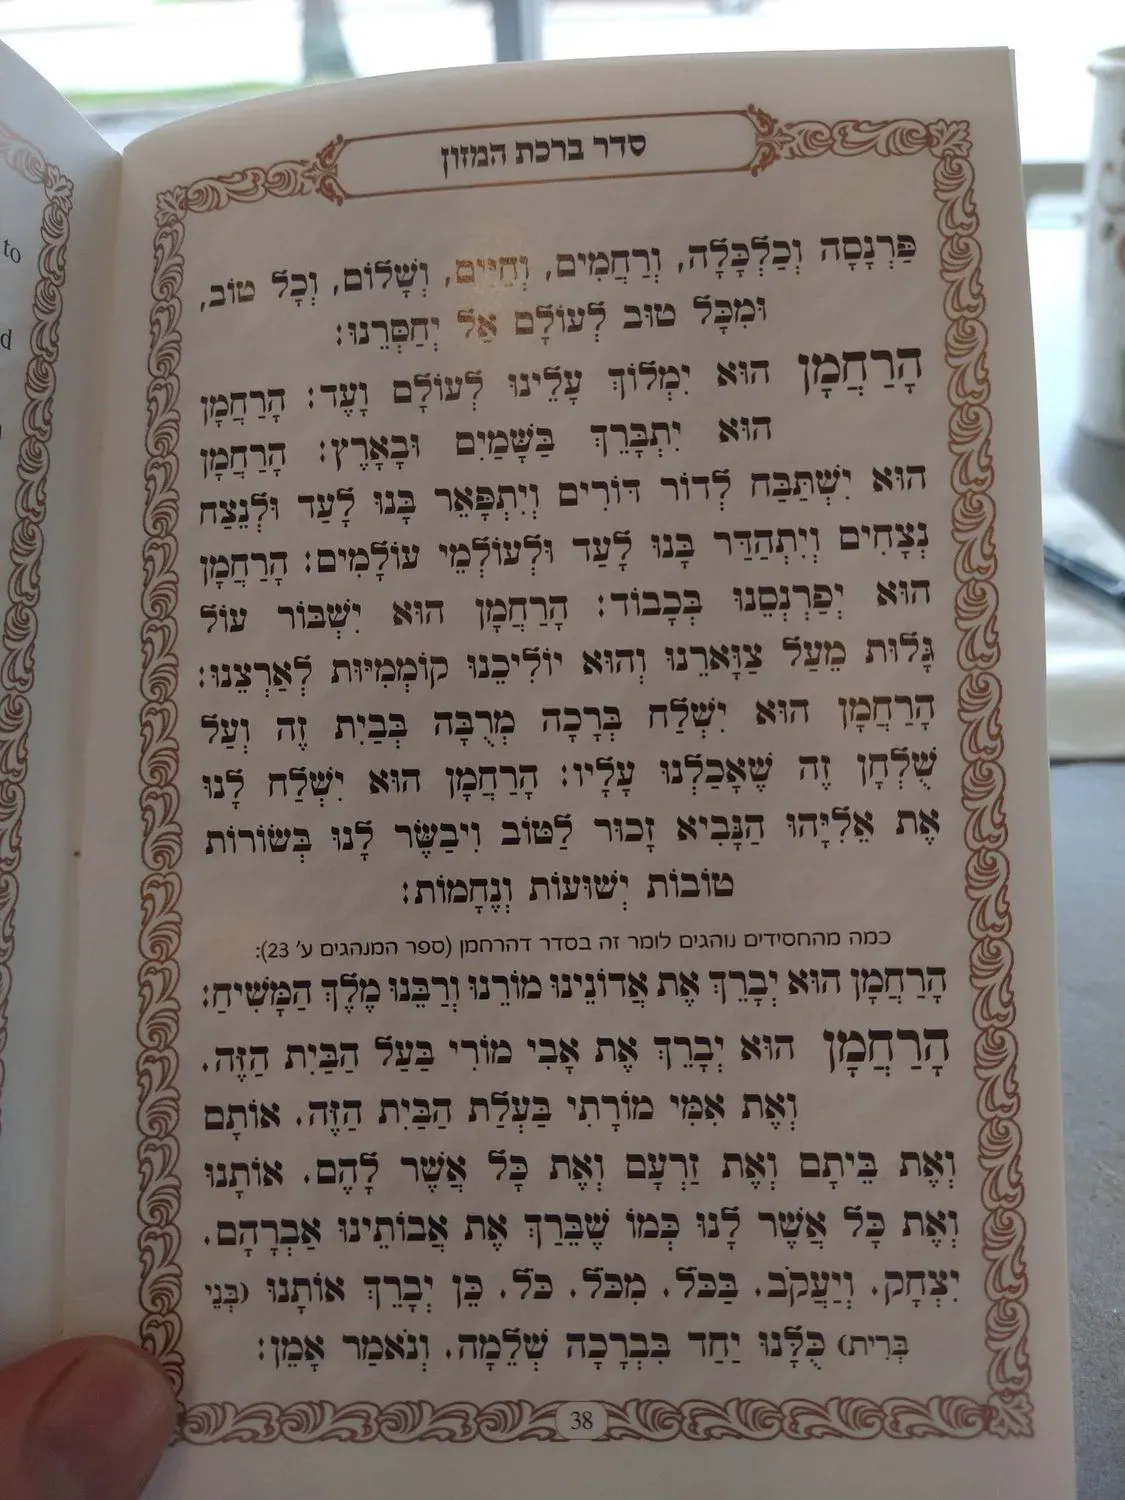 to
d
סדר ברכת המזון
פַּרְנָסָה וְכַלְכָּלָה, וְרַחֲמִים, וְחַיִּים, וְשָׁלוֹם, וְכָל טוֹב,
וּמִכָּל טוּב לְעוֹלָם אַל יְחַסְּרֵנוּ:
הָרַחֲמָן הוּא יִמְלוֹךְ עָלֵינוּ לְעוֹלָם וָעֶד: הָרַחֲמָן
הוּא יִתְבָּרֵךְ בַּשָּׁמַיִם וּבָאָרֶץ: הָרַחֲמָן
הוּא יִשְׁתַּבַּח לְדוֹר דּוֹרִים וְיִתְפָּאֵר בָּנוּ לָעַד וּלְנֵצַח
נְצָחִים וְיִתְהַדַּר בָּנוּ לָעַד וּלְעוֹלְמֵי עוֹלָמִים: הָרַחֲמָן
הוּא יְפַרְנְסֵנוּ בְּכָבוֹד: הָרַחֲמָן הוּא יִשְׁבּוֹר עוֹל
גָּלוּת מֵעַל צַוָּארֵנוּ וְהוּא יוֹלִיכֵנוּ קוֹמְמִיּוּת לְאַרְצֵנוּ:
הָרַחֲמָן הוּא יִשְׁלַח בְּרָכָה מְרֻבָּה בְּבַיִת זֶה וְעַל
שֻׁלְחָן זֶה שֶׁאָכַלְנוּ עָלָיו: הָרַחֲמָן הוּא יִשְׁלַח לָנוּ
אֶת אֵלִיָּהוּ הַנָּבִיא זָכוּר לַטּוֹב וִיבַשֶּׂר לָנוּ בְּשׂוֹרוֹת
טוֹבוֹת יְשׁוּעוֹת וְנֶחָמוֹת:
כמה מהחסידים נוהגים לומר זה בסדר דהרחמן (ספר המנהגים ע' 23):
הָרַחֲמָן הוּא יְבָרֵךְ אֶת אֲדוֹנֵינוּ מוֹרֵנוּ וְרַבֵּנוּ מֶלֶךְ הַמָּשִׁיחַ:
הָרַחֲמָן הוּא יְבָרֵךְ אֶת אָבִי מוֹרִי בַּעַל הַבַּיִת הַזֶּה.
וְאֶת אִמִּי מוֹרָתִי בַּעְלַת הַבַּיִת הַזֶּה. אוֹתָם
וְאֶת בֵּיתָם וְאֶת זַרְעָם וְאֶת כָּל אֲשֶׁר לָהֶם. אוֹתָנוּ
וְאֶת כָּל אֲשֶׁר לָנוּ כְּמוֹ שֶׁבֵּרַךְ אֶת אֲבוֹתֵינוּ אַבְרָהָם.
יִצְחָק. וְיַעֲקֹב. בַּכֹּל. מִכֹּל. כֹּל. כֵּן יְבָרֵךְ אוֹתָנוּ (בְּנֵי
בְּרִית) כֻּלָּנוּ יַחַד בִּבְרָכָה שְׁלֵמָה. וְנֹאמַר אָמֵן:
38